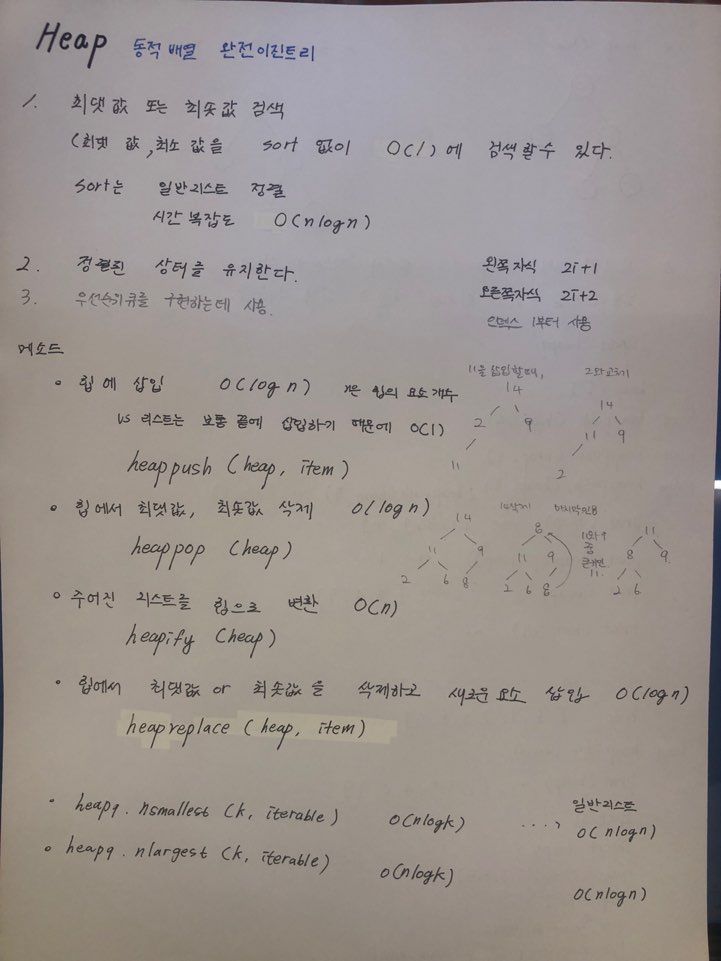 Heap 동적 배열 완전이진트리
1. 최댓값 또는 최솟값 검색
(최댓값, 최소 값을 sort 없이 O(1)에 검색할 수 있다.
sort는 일반리스트 정렬
시간 복잡도 O(nlogn)
2. 정렬된 상태를 유지한다.
3. 우선순위큐를 구현하는데 사용.
왼쪽자식 2i+1
오른쪽자식 2i+2
인덱스 1부터 사용
메소드
• 힙에 삽입 O(log n) n은 힙의 요소 개수
vs 리스트는 보통 끝에 삽입하기 때문에 O(1)
heappush (heap, item)
11을 삽입할때,
14
2 9
11
2와교체
14
11 9
2
• 힙에서 최댓값, 최솟값 삭제 O(log n)
heappop (heap)
14
11 9
2 6 8
14삭제 마지막
8
11 9
2 6 8
중
11
8 9
2 6
• 주어진 리스트를 힙으로 변환 O(n)
heapify (heap)
• 힙에서 최댓값 or 최솟값을 삭제하고 새로운 요소 삽입 O(logn)
heapreplace (heap, item)
• heapq. nsmallest (k, iterable) O(nlogk) ....> 일반리스트
O(nlogn)
• heapq. nlargest (k, iterable) O(nlogk)
O(nlogn)